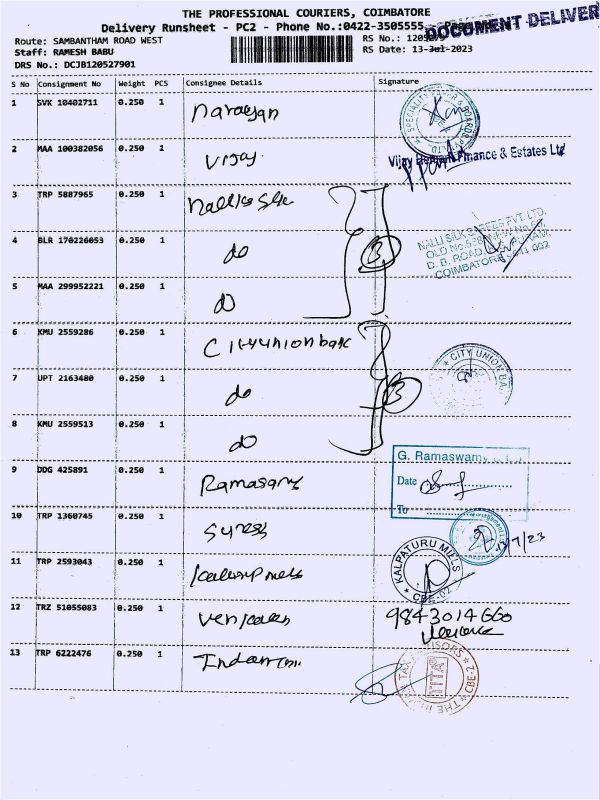 THE PROFESSIONAL COURIERS, COIMBATORE
Delivery Runsheet - PC2 - Phone No.:0422-3505555
DOCUMENT DELIVER
Route: SAMBANTHAM ROAD WEST
RS No.:
Staff: RAMESH BABU
RS Date: 13-Jul-2023
DRS No.: DCJB120527901
S No Consignment No Weight PCS Consignee Details Signature
1 SVK 10402711 0.250 1 Narayan
2 MAA 100382056 0.250 1 Vijay
Vijay Finance & Estates Ltd
3 TRP 5887965 0.250 1 Nalli Silk
4 BLR 170226053 0.250 1 do 3
NALLI SILK SAREES PVT. LTD.
OLD No.
D. B. ROAD,
COIMBATORE-641 002
5 MAA 299952221 0.250 1 do
6 KMU 2559286 0.250 1 Cityunionbank
7 UPT 2163480 0.250 1 do 3
CITY UNION BA
8 KMU 2559513 0.250 1 do
9 DDG 425891 0.250 1 Ramasamy
G. Ramaswamy
Date
To
10 TRP 1360745 0.250 1 Suresh
13/7/23
11 TRP 2593043 0.250 1
KALPATURU MILLS
CBE-02
12 TRZ 51055083 0.250 1
9843014660
13 TRP 6222476 0.250 1
TITA
CBE-2